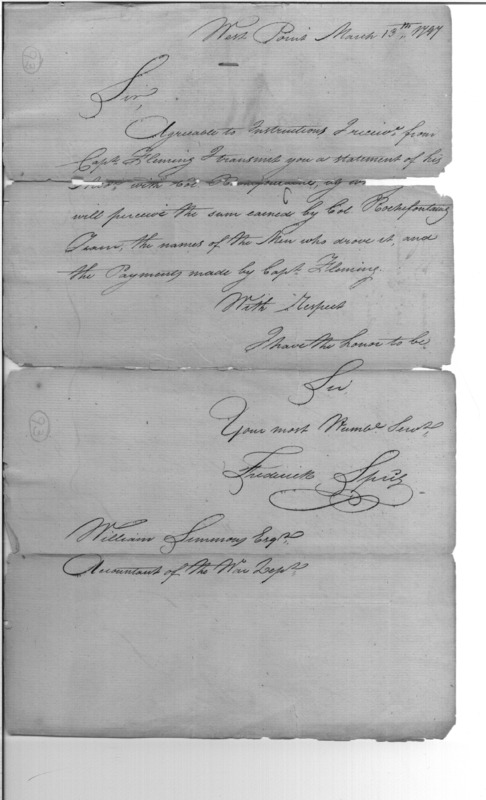 West Point March 13th 1797
Sir,
Agreeable to Instructions I receivd. from
Capt. Fleming I transmit you a statement of his
with Col. Rochefontaine,
will perceive the sum earned by Col Rochefontaine
Team, the names of the Men who drove it, and
the Payments made by Capt. Fleming.
With Respect
I have the honor to be
Sir
Your most Humbe. Servt.
Frederick
William Simmons Esqr.
Accountant of the War Dept.